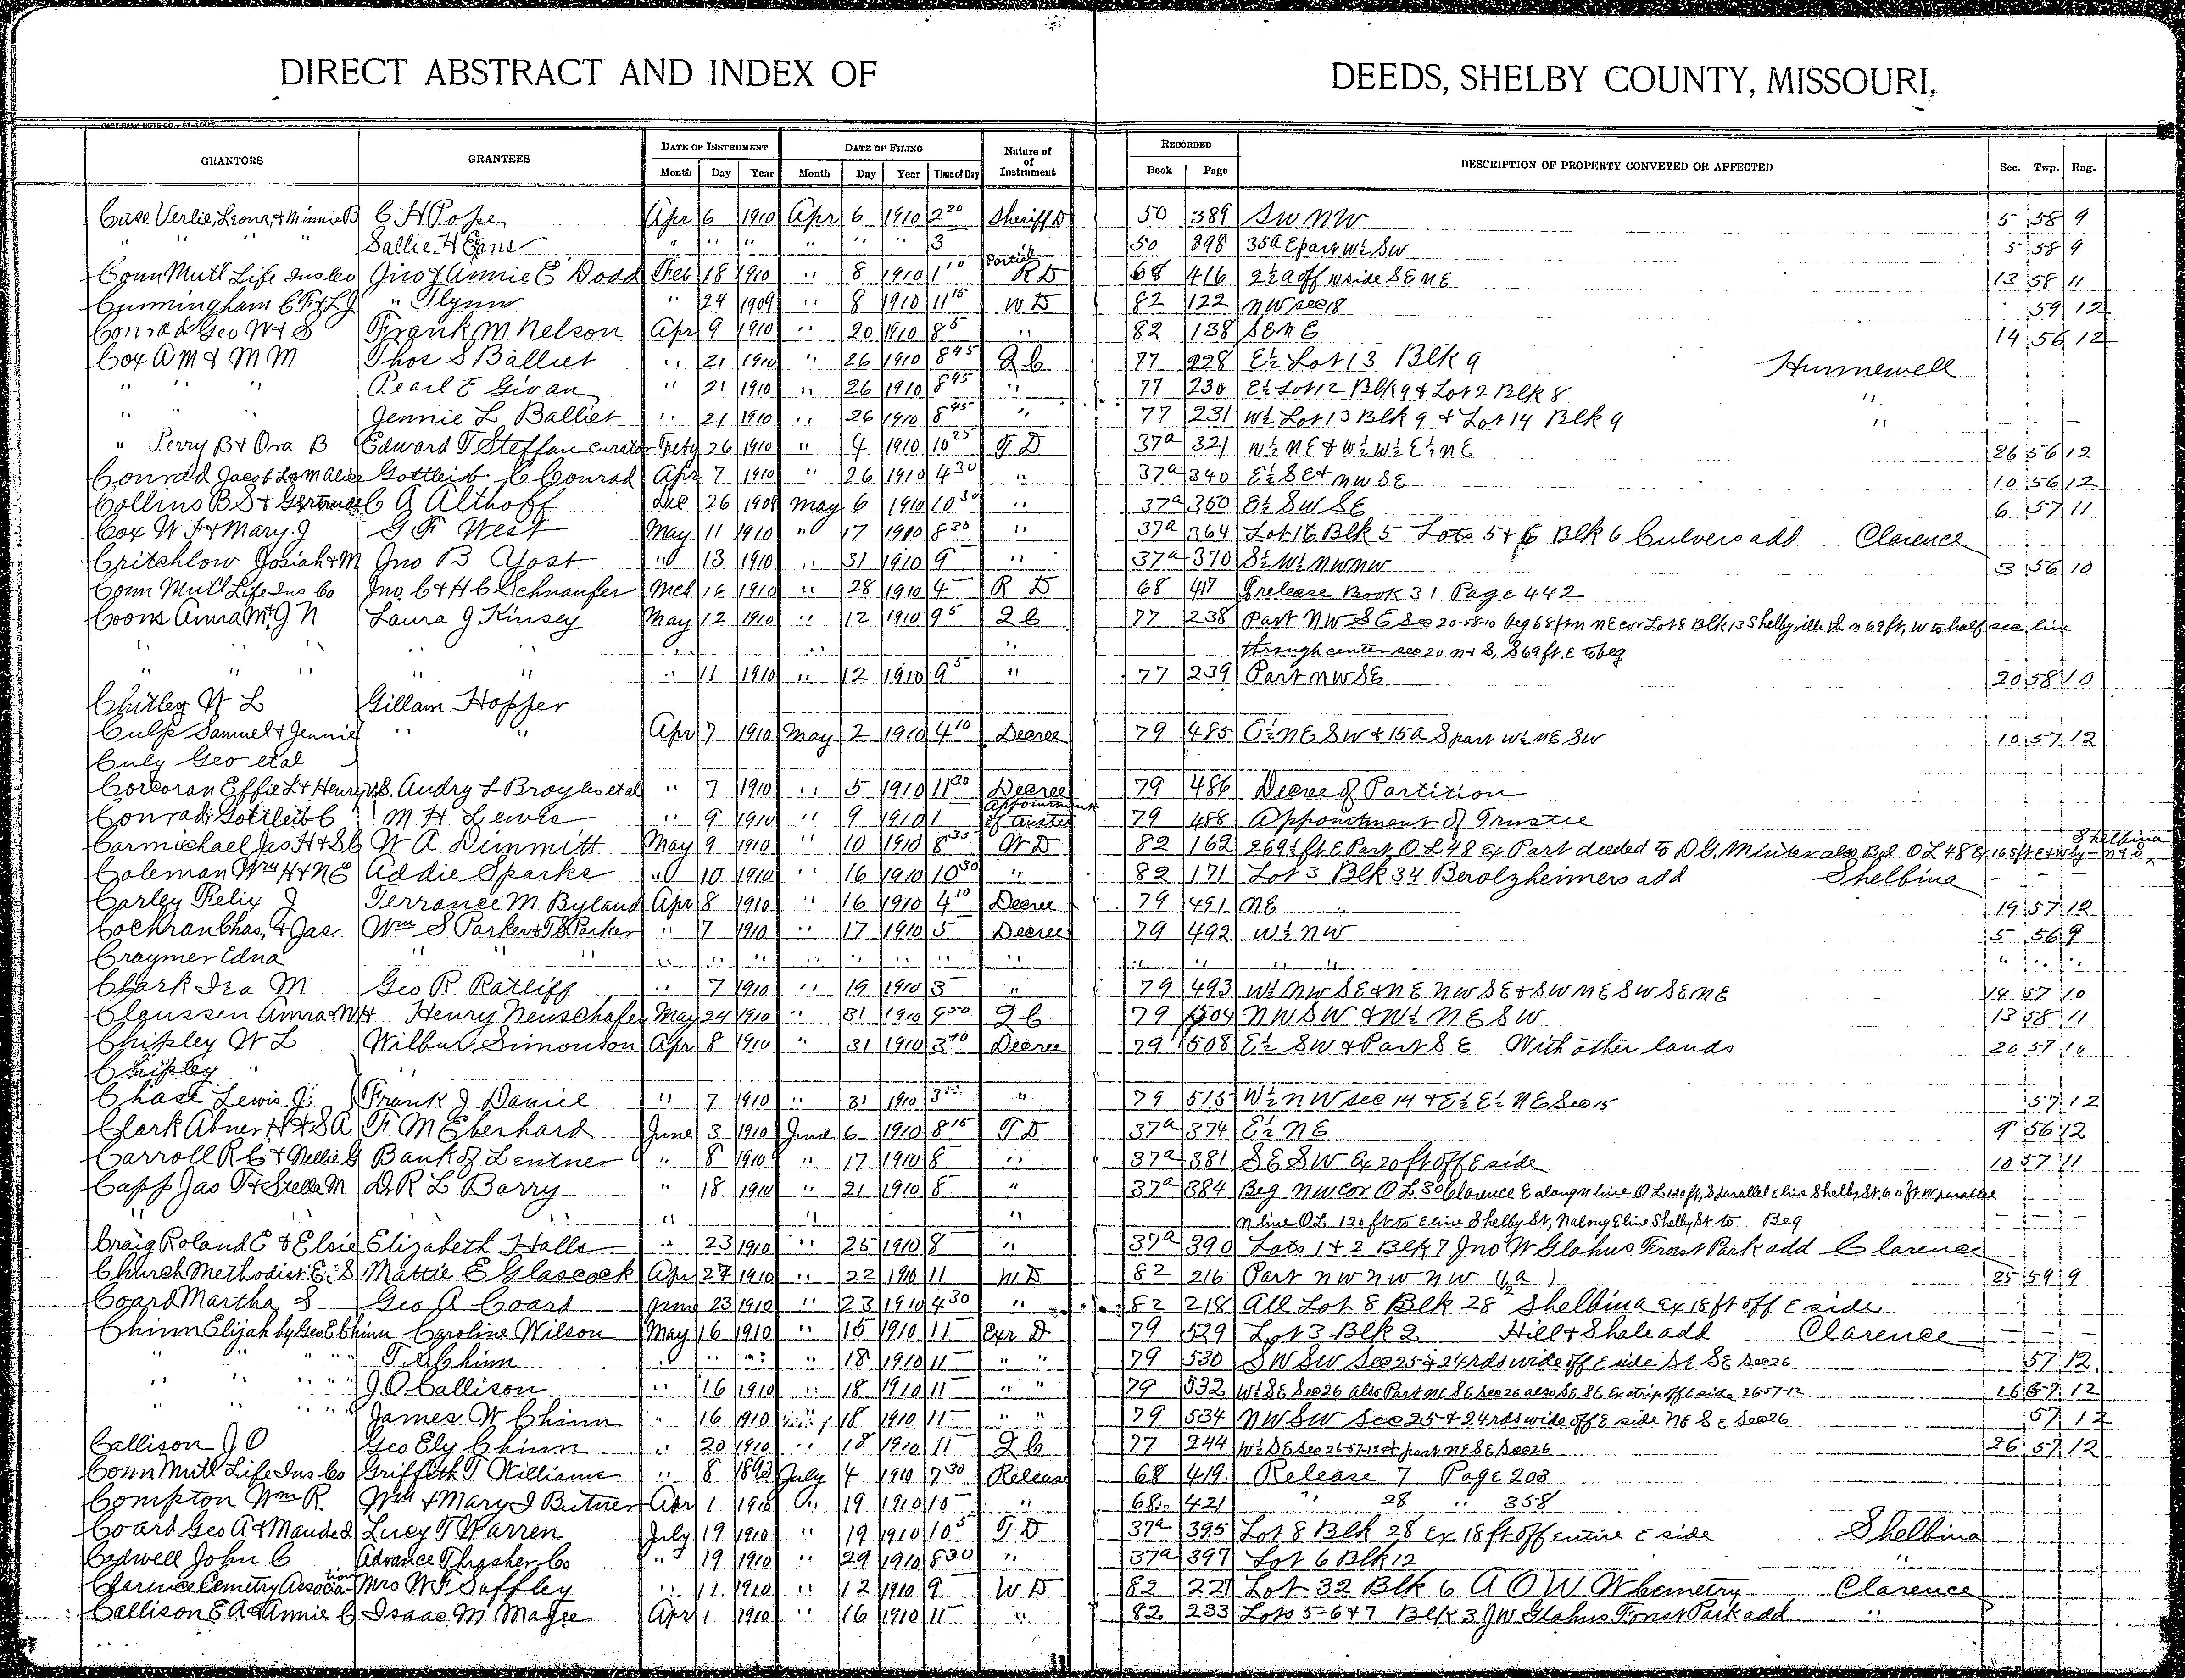 DIRECT ABSTRACT AND INDEX OF DEEDS, SHELBY COUNTY, MISSOURI.
GRANTORS GRANTEES DATE OF INSTRUMENT DATE OF FILING Nature of of Instrument RECORDED DESCRIPTION OF PROPERTY CONVEYED OR AFFECTED Sec. Twp. Rng.
Month Day Year Month Day Year Time of Day Book Page
Case Verlie, Leona, & Minnie B C. H Pope Apr 6 1910 Apr 6 1910 2 20 Sheriff D 50 389 SW NW 5 58 9
" " " " Sallie H Evans " " " " " " 3 50 398 35a E part W½ SW 5 58 9
Conn Mutl Life Ins Co Jno & Annie E Dodd Feb 18 1910 " 8 1910 1 10 Partial R D 68 416 2½ a off W side SE NE 13 58 11
Cunningham C F & L J " Flynn " 24 1909 " 8 1910 11 15 W D 82 122 NW sec 18 59 12
Conrad Geo W & S Frank M Nelson Apr 9 1910 " 20 1910 8 5 " 82 138 SE NE 14 56 12
Cox A M & M M Thos S Balliet " 21 1910 " 26 1910 8 45 Q C 77 228 E½ Lot 13 Blk 9 Hunnewell
" " " Pearl E Givan " 21 1910 " 26 1910 8 45 " 77 230 E½ Lot 12 Blk 9 & Lot 2 Blk 8 "
" " Jennie L Balliet " 21 1910 " 26 1910 8 45 " 77 231 W½ Lot 13 Blk 9 & Lot 14 Blk 9 " — — —
" Perry B & Ora B Edward T Steffan curator 26 1910 " 4 1910 10 25 T D 37a 321 W½ NE & W½ W½ E½ NE 26 56 12
Conrad Jacob L & M Alice Gottleib C Conrad Apr 7 1910 " 26 1910 4 30 " 37a 340 E½ SE & NW SE 10 56 12
Collins B S & Gertrude C A Althoff Dec 26 1908 May 6 1910 10 30 " 37a 360 E½ SW SE 6 57 11
Cox W F & Mary J G F West May 11 1910 " 17 1910 8 30 " 37a 364 Lot 16 Blk 5 Lots 5 & 6 Blk 6 Culvers add Clarence
Critchlow Josiah & M Jno B Yost " 13 1910 " 31 1910 9 " 37a 370 S½ W½ NW NW 3 56 10
Conn Mutl Life Ins Co Jno. C & H C Schnaufer Mch 16 1910 " 28 1910 4 R D 68 417 release Book 31 Page 442
Coons Anna M & J N Laura J Kinsey May 12 1910 " 12 1910 9 5 Q C 77 238 Part NW SE Sec 20-58-10 beg 68 ft n NE cor Lot 8 Blk 13 Shelbyville th n 69 ft, W to half sec line
" " " " " " " " through center sec 20 N & S, S 69 ft, E to beg
" " " " " " 11 1910 " 12 1910 9 5 " 77 239 Part NW SE 20 58 10
Chipley W L Gillam Hopper
Culp Samuel & Jennie " " Apr 7 1910 May 2 1910 4 10 Decree 79 485 E½ NE SW & 15a S part W½ NE SW 10 57 12
Culy Geo et al
Corcoran Effie L & Henry vs. Audry L Broyles et al " 7 1910 " 5 1910 11 30 Decree 79 486 Decree of Partition
Conrad Gottleib C M H Lewis " 9 1910 " 9 1910 1 Appointment of trustee 79 488 Appointment of Trustee
Carmichael Jas H & S C W A Dimmitt May 9 1910 " 10 1910 8 35 W D 82 162 269½ ft E Part O L 48 Ex Part deeded to D. G. Minter also Bal O L 48 Ex 165 ft E & W by N & S Shelbina
Coleman Wm H & N E Addie Sparks " 10 1910 " 16 1910 10 30 " 82 171 Lot 3 Blk 34 Berolzheimers add Shelbina — — —
Carley Felix J Terrance M Byland Apr 8 1910 " 16 1910 4 10 Decree 79 491 NE 19 57 12
Cochran Chas, & Jas. Wm S Parker & T S Parker " 7 1910 " 17 1910 5 Decree 79 492 W½ NW 5 56 9
Craymer Edna " " " " " " " " " " " " " " " " " "
Clark Ira M Geo R Ratliff " 7 1910 " 19 1910 3 " 79 493 W½ NW SE & NE NW SE & SW NE SW SE NE 14 57 10
Claussen Anna & W H Henry Neuschafer May 24 1910 " 31 1910 9 50 Q C 79 504 NW SW & W½ NE SW 13 58 11
Chipley W L Wilbur Simonson Apr 8 1910 " 31 1910 3 40 Decree 79 508 E½ SW & Part SE With other lands 26 57 10
Chipley "
Chase Lewis J. Frank J Daniel " 7 1910 " 31 1910 3 " 79 515 W½ NW sec 14 & E½ E½ NE Sec 15 57 12
Clark Abner H & S A F M Eberhard June 3 1910 June 6 1910 8 15 T D 37a 374 E½ NE 9 56 12
Carroll R C & Nellie G Bank of Lentner " 8 1910 " 17 1910 8 " 37a 381 SE SW Ex 20 ft off E side 10 57 11
Capp Jas T & Stella M D. R L Barry " 18 1910 " 21 1910 8 " 37a 384 Beg NW cor O L 30 Clarence E along N line O L 120 ft, S parallel E line Shelby St. 60 ft W parallel
" " " " " " N line O L 120 ft to E line Shelby St, N along E line Shelby St to Beg — — —
Craig Roland E & Elsie Elizabeth Halls " 23 1910 " 25 1910 8 " 37a 390 Lots 1 & 2 Blk 7 Jno W Glahns Forest Park add Clarence
Church Methodist E. S Mattie E Glascock Apr 27 1910 " 22 1910 11 W D 82 216 Part NW NW NW (½ a) 25 59 9
Coard Martha S Geo A Coard June 23 1910 " 23 1910 4 30 " 82 218 All Lot 8 Blk 28 Shelbina Ex 18 ft off E side
Chinn Elijah by Geo E Chinn Caroline Wilson May 16 1910 " 15 1910 11 Exr D 79 529 Lot 3 Blk 2 Hill & Shale add Clarence — — —
" " " " T. A Chinn " " " " 18 1910 11 " " 79 530 SW SW Sec 25 & 24 rds wide off E side SE SE Sec 26 57 12
" " " " J. O Callison " 16 1910 " 18 1910 11 " " 79 532 W½ SE Sec 26 also Part NE SE Sec 26 also SE SE Ex strip off E side 26-57-12 26 57 12
" " " " James W Chinn " 16 1910 " 18 1910 11 " " 79 534 NW SW Sec 25 & 24 rds wide off E side NE SE Sec 26 57 12
Callison J O Geo Ely Chinn " 20 1910 " 18 1910 11 Q C 77 244 W½ SE Sec 26-57-12 & part NE SE Sec 26 26 57 12
Conn Mutl Life Ins Co Griffith T Williams " 8 1893 July 4 1910 7 30 Release 68 419 Release 7 Page 203
Compton Wm R. Wm & Mary I Butner Apr 1 1908 " 19 1910 10 " 68 421 " 28 " 358
Coard Geo A & Maude A Lucy T Warren July 19 1910 " 19 1910 10 5 T D 37a 395 Lot 8 Blk 28 Ex 18 ft off entire E side Shelbina
Cadwell John C Advance Thrasher Co " 19 1910 " 29 1910 8 30 " 37a 397 Lot 6 Blk 12 "
Clarence Cemetry Association Mrs W F Saffley " 11 1910 " 12 1910 9 W D 82 221 Lot 32 Blk 6 A O U W Cemetry Clarence
Callison E A & Annie C Isaac M Magee Apr 1 1910 " 16 1910 11 " 82 233 Lots 5-6 & 7 Blk 3 J W Glahns Forest Park add "